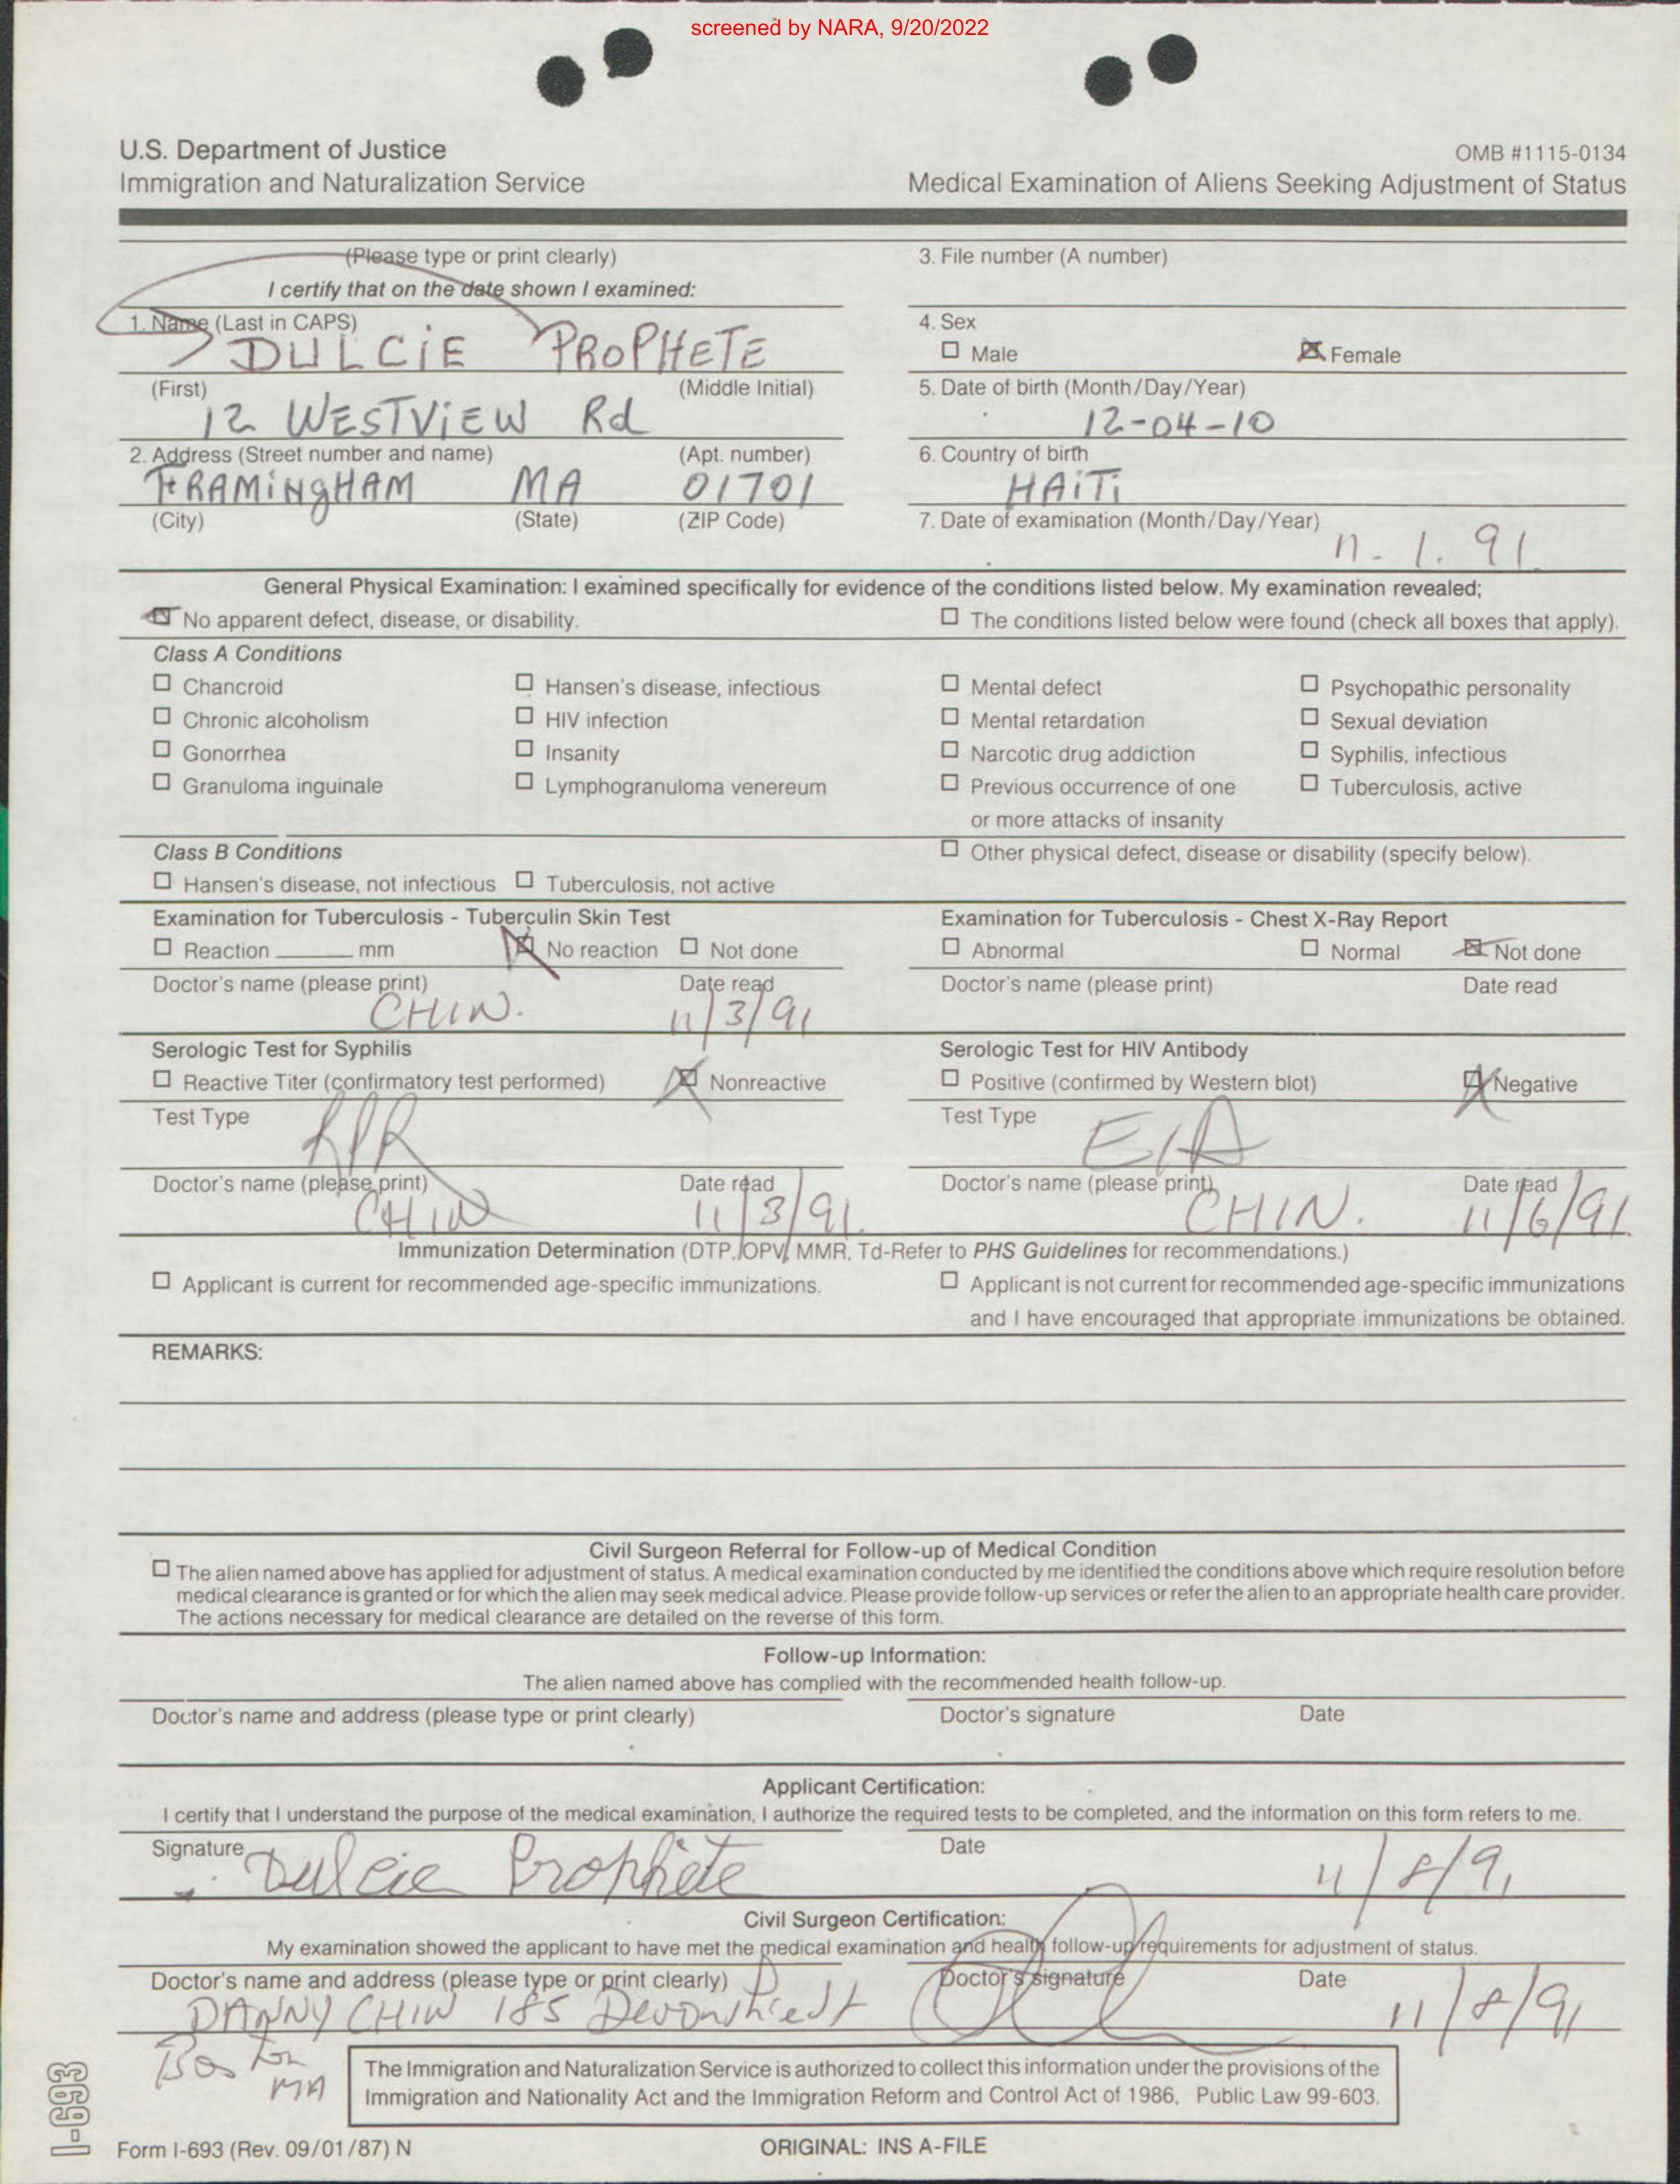 screened by NARA, 9/20/2022
U.S. Department of Justice
Immigration and Naturalization Service
OMB #1115-0134
Medical Examination of Aliens Seeking Adjustment of Status
(Please type or print clearly)
I certify that on the date shown I examined:
3. File number (A number)
1. Name (Last in CAPS)
DULCiE PROPHETE
(First) (Middle Initial)
4. Sex
☐ Male ☒ Female
12 WESTViEW Rd
5. Date of birth (Month/Day/Year)
12-04-10
2. Address (Street number and name) (Apt. number)
FRAMiNgHAM MA 01701
(City) (State) (ZIP Code)
6. Country of birth
HAiTi
7. Date of examination (Month/Day/Year)
11. 1. 91
General Physical Examination: I examined specifically for evidence of the conditions listed below. My examination revealed;
☒ No apparent defect, disease, or disability. ☐ The conditions listed below were found (check all boxes that apply).
Class A Conditions
☐ Chancroid ☐ Hansen's disease, infectious ☐ Mental defect ☐ Psychopathic personality
☐ Chronic alcoholism ☐ HIV infection ☐ Mental retardation ☐ Sexual deviation
☐ Gonorrhea ☐ Insanity ☐ Narcotic drug addiction ☐ Syphilis, infectious
☐ Granuloma inguinale ☐ Lymphogranuloma venereum ☐ Previous occurrence of one ☐ Tuberculosis, active
or more attacks of insanity
Class B Conditions ☐ Other physical defect, disease or disability (specify below).
☐ Hansen's disease, not infectious ☐ Tuberculosis, not active
Examination for Tuberculosis - Tuberculin Skin Test
☐ Reaction ______ mm ☒ No reaction ☐ Not done
Doctor's name (please print) Date read
CHIN. 11/3/91
Examination for Tuberculosis - Chest X-Ray Report
☐ Abnormal ☐ Normal ☒ Not done
Doctor's name (please print) Date read
Serologic Test for Syphilis
☐ Reactive Titer (confirmatory test performed) ☒ Nonreactive
Test Type
RPR
Doctor's name (please print) Date read
CHIN 11/3/91.
Serologic Test for HIV Antibody
☐ Positive (confirmed by Western blot) ☒ Negative
Test Type
EIA
Doctor's name (please print) Date read
CHIN. 11/6/91
Immunization Determination (DTP, OPV, MMR, Td-Refer to PHS Guidelines for recommendations.)
☐ Applicant is current for recommended age-specific immunizations. ☐ Applicant is not current for recommended age-specific immunizations
and I have encouraged that appropriate immunizations be obtained.
REMARKS:
Civil Surgeon Referral for Follow-up of Medical Condition
☐ The alien named above has applied for adjustment of status. A medical examination conducted by me identified the conditions above which require resolution before
medical clearance is granted or for which the alien may seek medical advice. Please provide follow-up services or refer the alien to an appropriate health care provider.
The actions necessary for medical clearance are detailed on the reverse of this form.
Follow-up Information:
The alien named above has complied with the recommended health follow-up.
Doctor's name and address (please type or print clearly) Doctor's signature Date
Applicant Certification:
I certify that I understand the purpose of the medical examination, I authorize the required tests to be completed, and the information on this form refers to me.
Signature Date
Dulcie Prophète 11/8/91
Civil Surgeon Certification:
My examination showed the applicant to have met the medical examination and health follow-up requirements for adjustment of status.
Doctor's name and address (please type or print clearly) Doctor's signature Date
DANNY CHIN 185 Devonshire St 11/8/91
Boston
MA
The Immigration and Naturalization Service is authorized to collect this information under the provisions of the
Immigration and Nationality Act and the Immigration Reform and Control Act of 1986, Public Law 99-603.
I-693
Form I-693 (Rev. 09/01/87) N
ORIGINAL: INS A-FILE